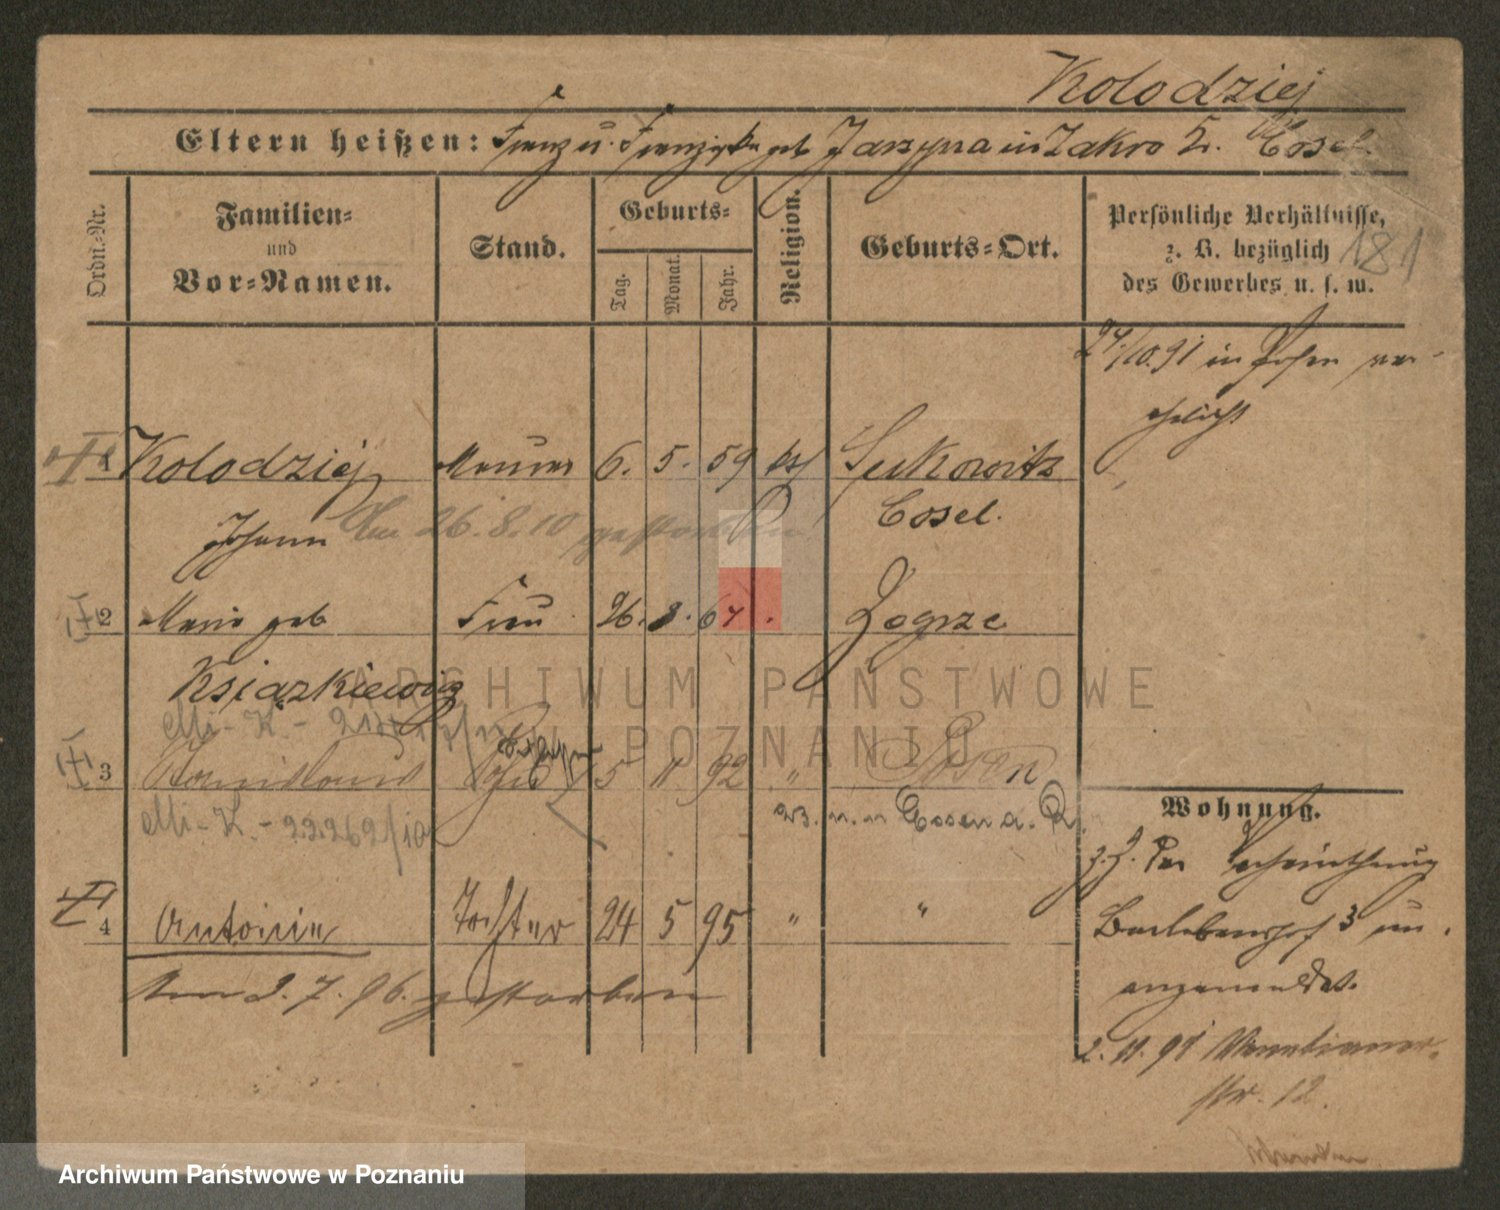 Kolodziej
Eltern heißen: Franz u. Franziska geb Jarzyna in Zakro K. Cosel.
Ordn.-Nr.
Familien-
und
Vor-Namen.
Stand.
Geburts-
Tag.
Monat.
Jahr.
Religion.
Geburts-Ort.
Persönliche Verhältnisse,
z. B. bezüglich
des Gewerbes u. s. w.
181
24/10.91 in Posen ver-
ehelicht
1 Kolodziej Maurer 6. 5. 59 kath Suckowitz
Johann Am 26.8.10 gestorben Cosel.
2 Marie geb Frau 26. 8. 67. Zogrze
Książkiewicz
3 Stanislaus Sohn 5 11 92 " Posen
Essen a. R.
4 Antonie Tochter 24 5 95 " "
Am 2.7.96. gestorben
Wohnung.
z. Z. Per
Berlebenshof 3 un
angemeldet.
2. 11. 91 Venetianer-
str. 12.
ARCHIWUM PAŃSTWOWE
W POZNANIU
Archiwum Państwowe w Poznaniu